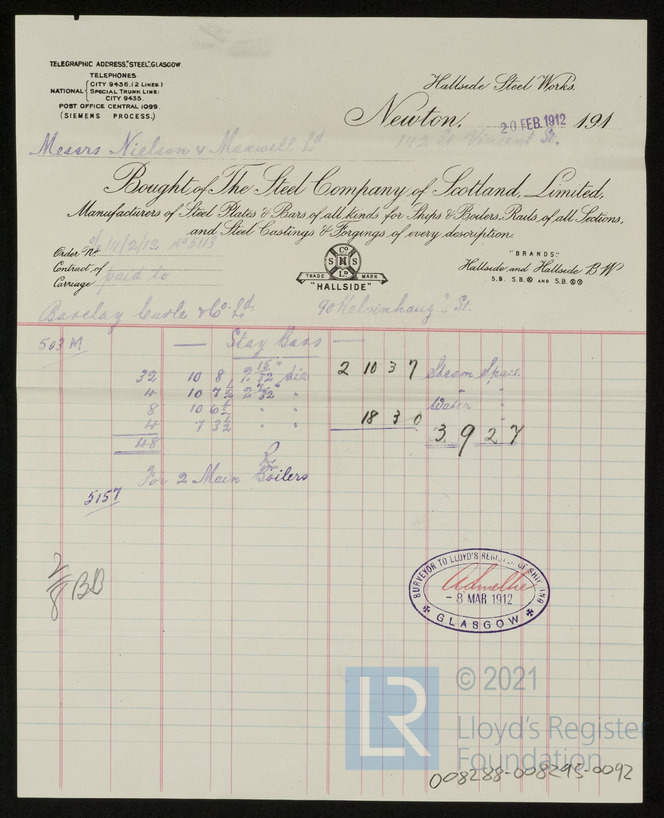 TELEGRAPHIC ADDRESS, "STEEL", GLASGOW.
TELEPHONES
NATIONAL { CITY 9436, (2 LINES)
SPECIAL TRUNK LINE:
CITY 9435.
POST OFFICE CENTRAL 1099.
(SIEMENS PROCESS.)
Hallside Steel Works.
Newton, 20 FEB. 1912 191
Messrs Nielson & Maxwell Ld 142 St Vincent St.
Bought of The Steel Company of Scotland, Limited,
Manufacturers of Steel Plates & Bars, of all kinds for Ships & Boilers. Rails, of all Sections,
and Steel Castings & Forgings of every description.
Order No 14/2/12 No 5113
Contract of
Carriage paid to
S Co H S Ld
TRADE MARK
"HALLSIDE"
"BRANDS":
Hallside and Hallside B.W
S.B. S.B. AND S.B.
Barclay Curle & Co. Ld. 90 Kelvinhaugh St.
503 M — Stay Bars —
32 10 8 2 15/32 dia 2 10 3 7 Steam Space
4 10 7½ "
8 10 6½ " " Water "
4 7 3½ " " 18 3 0
48 3 9 2 7
For 2 Main Boilers
5157
BD
SURVEYOR TO LLOYD'S REGISTER OF SHIPPING
- 8 MAR 1912
GLASGOW
LR
© 2021
Lloyd's Register
Foundation
008288-008293-0092